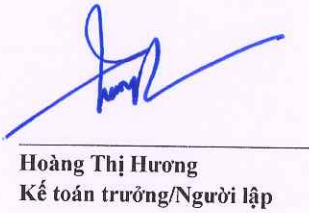 Hoàng Thị Hương
Kế toán trưởng/Người lập